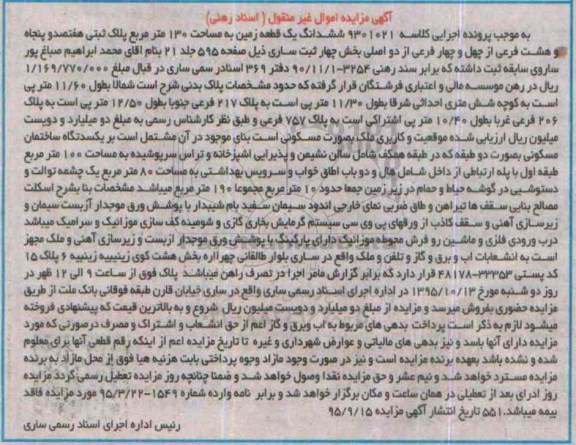 آگهی مزایده اموال غیر منقول ( اسناد رهنی)
به موجب پرونده اجرایی کلاسه ۹۳۰۱۰۲۱ ششدانگ یک قطعه زمین به مساحت ۱۳۰ متر مربع پلاک ثبتی هفتصدو پنجاه
و هشت فرعی از چهل و چهار فرعی از دو اصلی بخش چهار ثبت ساری ذیل صفحه ۵۹۵ جلد ۲۱ بنام آقای محمد ابراهیم صباغ پور
ساروی سابقه ثبت داشته که برابر سند رهنی ۳۲۵۴-۹۰/۱۱/۱ دفتر ۳۶۹ اسنادر سمی ساری در قبال مبلغ ۱/۱۶۹/۷۷۰/۰۰۰
ریال در رهن موسسه مالی و اعتباری فرشتگان قرار گرفته که حدود مشخصات پلاک بدنی شرح است شمالا بطول ۱۱/۶۰ متر پی
است به کوچه شش متری احداثی شرقا بطول ۱۱/۳۰ متر پی است به پلاک ۲۱۷ فرعی جنوبا بطول ۱۲/۵۰ متر پی است به پلاک
۲۰۶ فرعی غربا بطول ۱۰/۴۰ متر پی اشتراکی است به پلاک ۷۵۷ فرعی و طبق نظر کارشناس رسمی به مبلغ دو میلیارد و دویست
میلیون ریال ارزیابی شده موقعیت و کاربری ملک بصورت مسکونی است بنای موجود در آن مشتمل است بر یکدستگاه ساختمان
مسکونی بصورت دو طبقه که در طبقه همکف شامل سالن نشیمن و پذیرایی اشپزخانه و تراس سرپوشیده به مساحت ۱۰۰ متر مربع
طبقه اول با پله ارتباطی از داخل شامل هال و دو باب اطاق خواب و سرویس بهداشتی به مساحت ۸۰ متر مربع یک چشمه توالت و
دستوشیی در گوشه حیاط و حمام در زیر زمین جمعا حدود ۱۰ متر مربع مجموعا ۱۹۰ متر مربع میباشد مشخصات بنا بشرح اسکلت
مصالح بنایی سقف ها تیراهن و طاق ضربی نمای خارجی اندود سیمان سفید بام شیبدار با پوشش ورق موجدار آزبست سیمان و
زیرسازی آهنی و سقف کاذب از ورقهای پی وی سی سیستم گرمایش بخاری گازی و شومینه کف سازی موزانیک و سرامیک میباشد
درب ورودی فلزی و ماشین رو فرش محوطه موزانیک دارای پارکینگ با پوشش ورق موجدار آزبست و زیرسازی آهنی و ملک مجهز
است به انشعابات اب و برق و گاز و تلفن و ملک واقع در ساری بلوار طالقانی چهارراه بخش هشت کوی زینبییه زینبیه ۶ پلاک ۱۵
کد پستی ۳۳۳۵۳-۴۸۱۷۸ قرار دارد که برابر گزارش مامز اجرا در تصرف راهن میباشد پلاک فوق از ساعت ۹ الی ۱۲ ظهر در
روز دو شنبه مورخ ۱۳۹۵/۱۰/۱۳ در اداره اجرای اسناد رسمی ساری واقع در ساری خیابان قارن طبقه فوقانی بانک ملت از طریق
مزایده حضوری بفروش میرسد و مزایده از مبلغ دو میلیارد و دویست میلیون ریال شروع و به بالاترین قیمت که پیشنهادی فروخته
میشود لازم به ذکر است پرداخت بدهی های مربوط به اب وبرق و گاز اعم از حق انشعاب و اشتراک و مصرف درصورتی که مورد
مزایده دارای آنها باسد و نیز بدهی های مالیاتی و عوارض شهرداری و غیره تا تاریخ مزایده اعم از اینکه رقم قطعی آنها برای معلوم
شده و نشده باشد بعهده برنده مزایده است و نیز در صورت وجود مازاد وجوه پرداختی بابت هزینه هیا فوق از محل مازاد به برنده
مزایده مسترد خواهد شد و نیم عشر و حق مزایده نقدا وصول خواهد شد و ضمنا چنانچه روز مزایده تعطیل رسمی گردد مزایده
روز ادرای بعد از تعطیلی در همان ساعت و مکان برگزار خواهد شد و برابر نامه وارده شماره ۱۵۴۹-۹۵/۳/۲۲ مورد مزایده فاقد
بیمه میباشد.۵۵۱ تاریخ انتشار آگهی مزایده ۹۵/۹/۱۵
رئیس اداره اجرای اسناد رسمی ساری